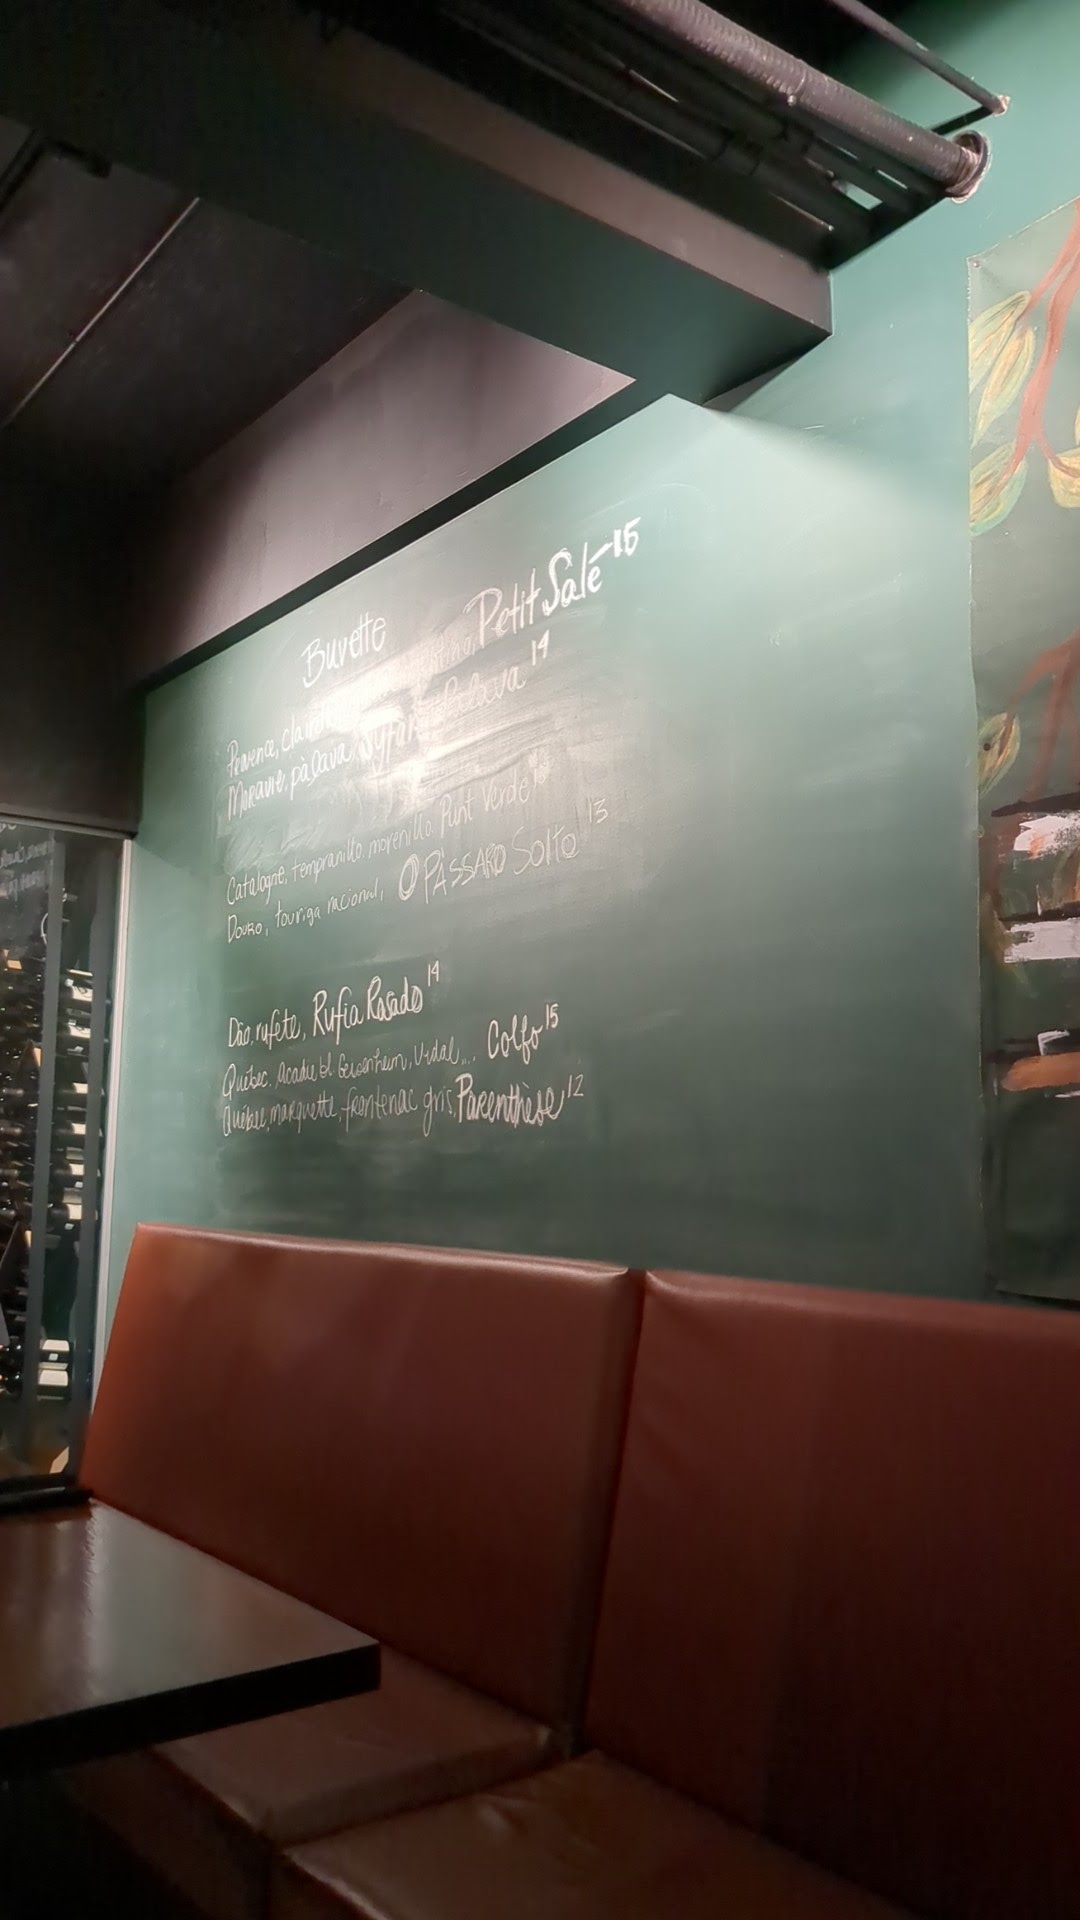 Buvette
Provence, Petit Salé 15
Moravie, pàlava, Palava 14
Catalogne, tempranillo, morenillo. Punt Verde
Douro, touriga nacional, O PÁSSARO SOLTO 13
Dão, rufete, Rufia Rosado 14
Québec, acadie bl. Geisenheim, Vidal... Colfo 15
Québec, marquette, frontenac gris, Parenthèse 12